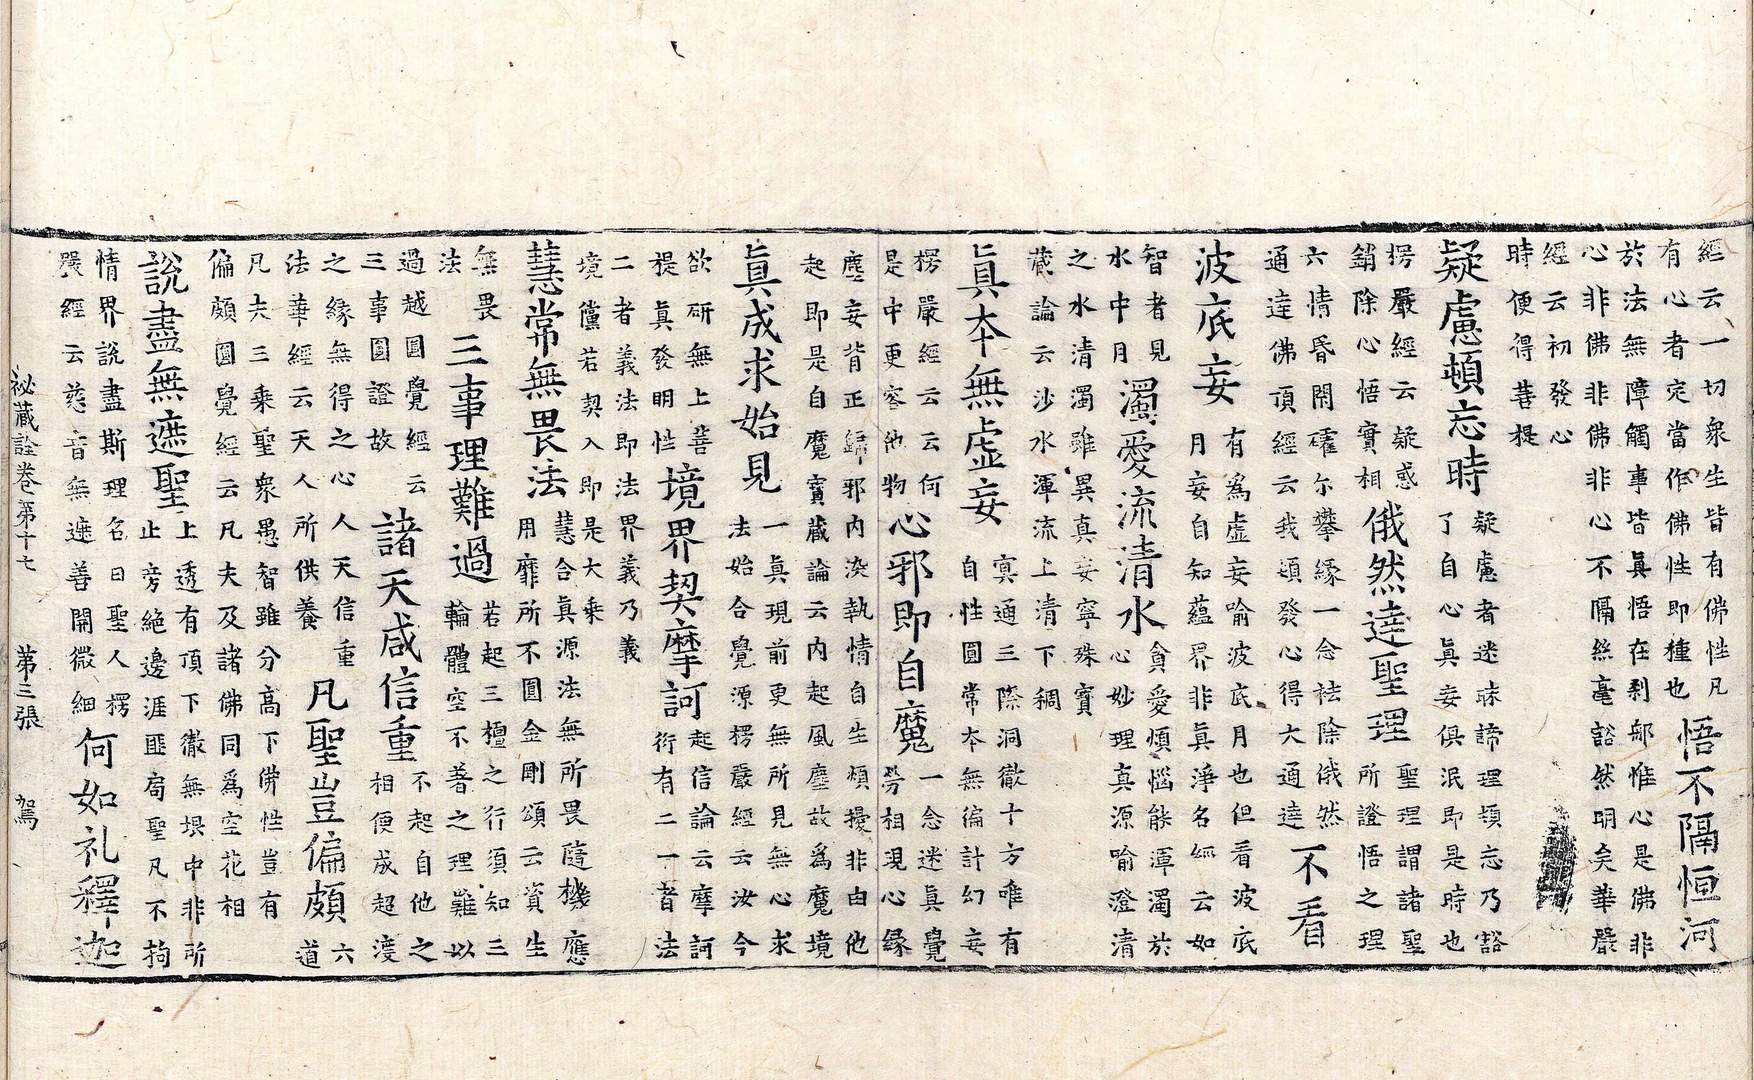 經云一切衆生皆有佛性凡
有心者定當作佛性即種也
悟不隔恒河
於法無障觸事皆眞悟在刹那惟心是佛非
心非佛非佛非心不隔絲毫豁然明矣華嚴
經云初發心
時便得菩提
疑慮頓忘時
疑慮者迷昧諦理頓忘乃豁
了自心眞妄俱泯即是時也
楞嚴經云疑惑
銷除心悟實相
俄然達聖理
聖理謂諸聖
所證悟之理
六情昏閉尔攀緣一念祛除俄然
通達佛頂經云我頓發心得大通達
不看
波底妄
有爲虛妄喻波底月也但看波底
月妄自知蘊界非眞淨名經云如
智者見
水中月
濁愛流清水
貪愛煩惱能渾濁於
心妙理真源喻澄清
之水清濁雖異真妄寧殊寶
藏論云沙水渾流上清下稠
眞本無虛妄
寘通三際洞徹十方唯有
自性圓常本無徧計幻妄
楞嚴經云云何
是中更容他物
心邪即自魔
一念迷眞覺
勞相現心緣
塵妄背正歸邪内決執情自生煩擾非由他
起即是自魔寶藏論云内起風塵故爲魔境
眞成求始見
一眞現前更無所見無心求
法始合覺源楞嚴經云汝今
欲研無上菩
提眞發明性
境界契摩訶
起信論云摩訶
衍有二一者法
二者義法即法界義乃義
境儻若契入即是大乗
慧常無畏法
慧合真源法無所畏隨機應
用靡所不圓金剛頌云資生
無畏
法
三事理難過
若起三檀之行須知三
輪體空不著之理難以
過越圓覺經云
三事圓證故
諸天咸信重
不起自他之
相便成超渡
之緣無得之心人天信重
法華經云天人所供養
凡聖豈偏頗
六
道
凡夫三乗聖衆愚智雖分高下佛性豈有
偏頗圓覺經云凡夫及諸佛同爲空花相
說盡無遮聖
上透有頂下徹無垠中非所
止旁絶邊涯匪局聖凡不拘
情界說盡斯理名曰聖人楞
嚴經云慈音無遮善開微細
何如礼釋迦
祕藏詮卷第十七 第三張 駕